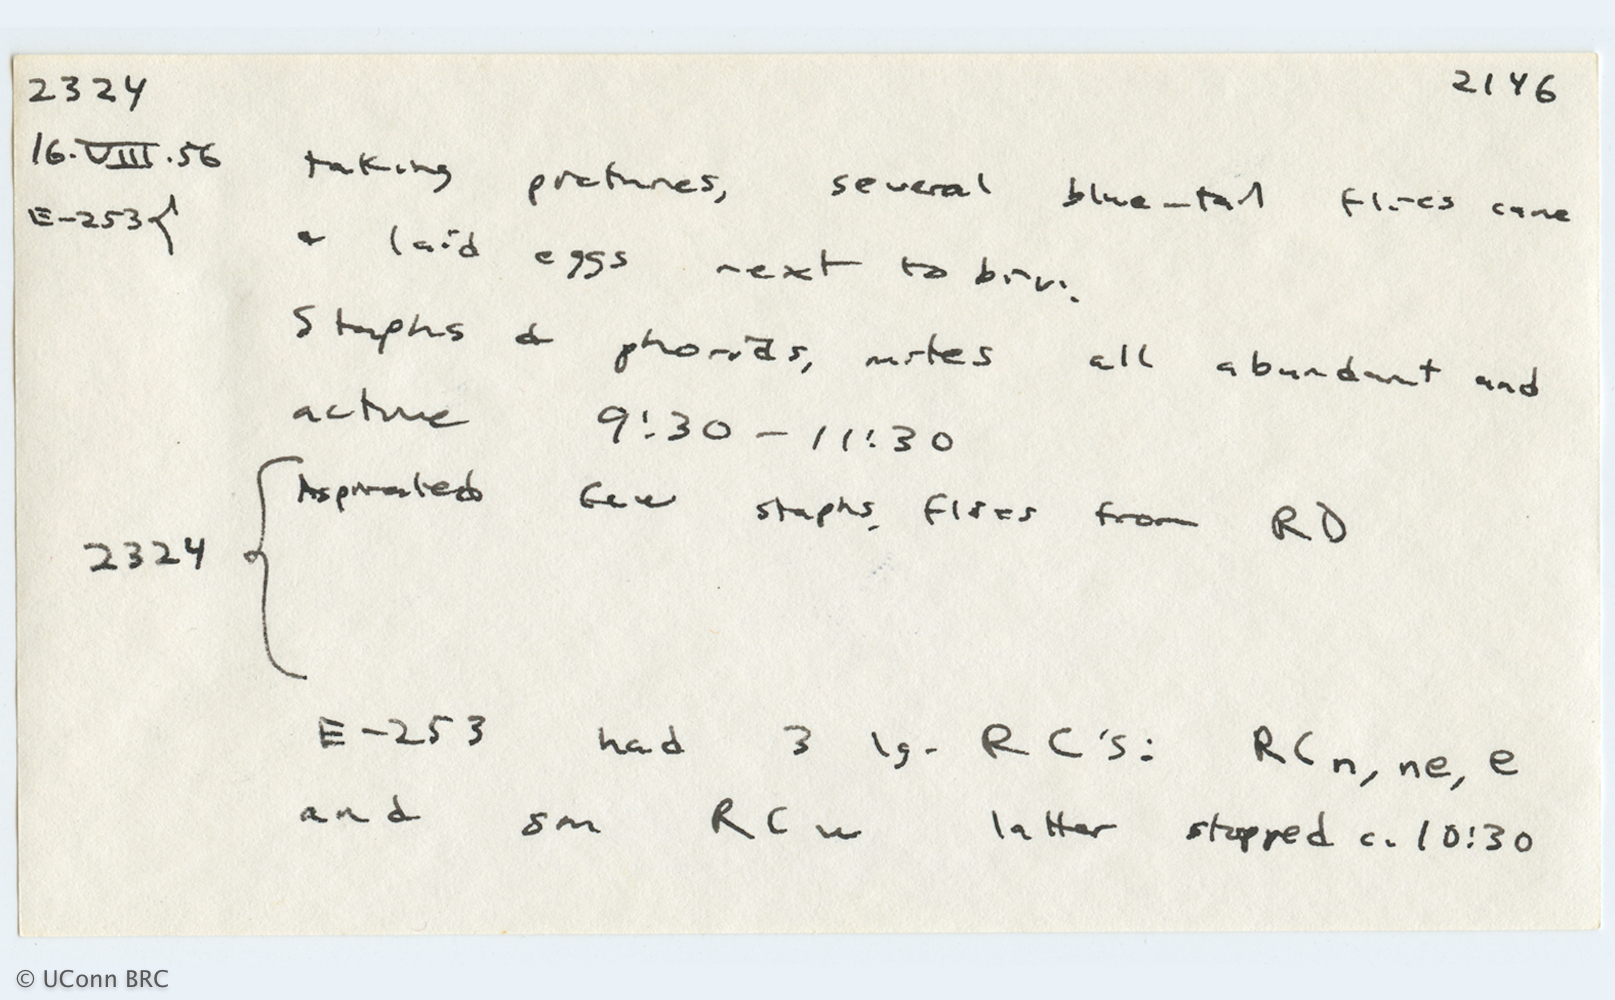 2324 2146
16.VIII.56 taking pictures, several blue-tail flies came
E-253{ & laid eggs next to biv.
Staphs & phorids, mites all abundant and
active 9:30 - 11:30
Aspirated few staphs, flies from RD
2324 {
E-253 had 3 lg. RC's: RC n, ne, e
and sm RC w latter stopped c. 10:30
© UConn BRC